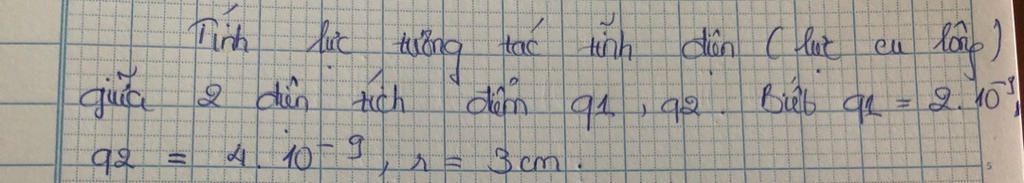 Tính lực tương tác tĩnh điện (lực cu lông)
giữa 2 điện tích điểm q1, q2. Biết q1 = 2.10⁻⁹,
q2 = 4.10⁻⁹, r = 3cm.